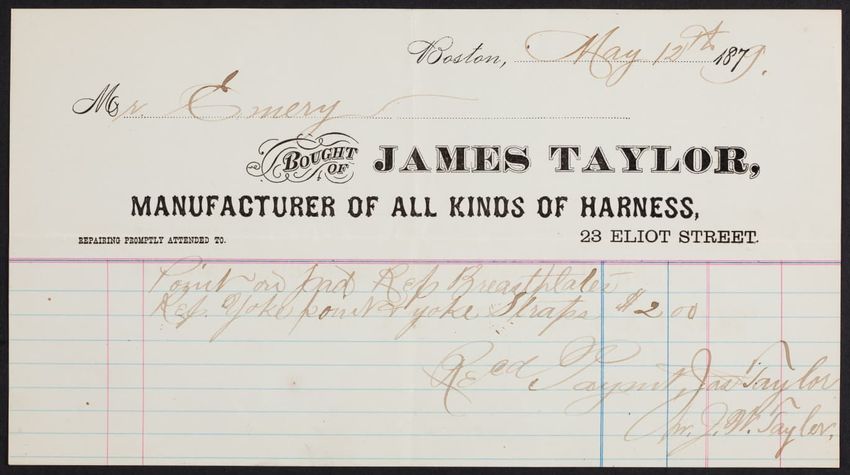 Boston, May 12th 1879.
Mr. Emery
BOUGHT OF JAMES TAYLOR,
MANUFACTURER OF ALL KINDS OF HARNESS,
REPAIRING PROMPTLY ATTENDED TO. 23 ELIOT STREET.
Point on pad Rep Breastplates
Rep. Yoke point & yoke Straps $2 00
Recd Paymt, Jas Taylor
J. W. Taylor.